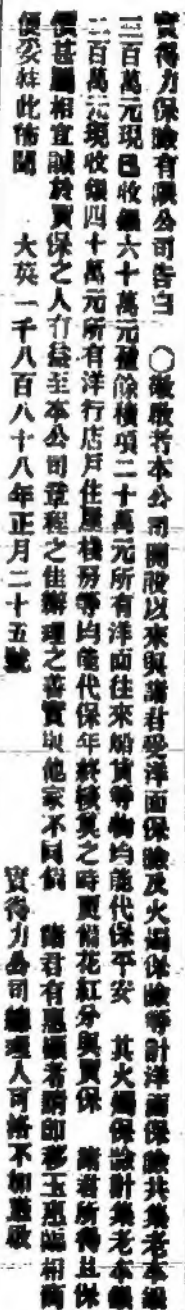 寶得力保險有限公司告白　○啟者本公司開設以來與諸君受洋面保險及火燭保險等計洋面保險共集老本銀
三百萬元現已收銀六十萬元積項二十萬元所有洋面往來船貨等物均能代保平安　其火燭保險計集老本銀
二百萬元現收銀四十萬元所有洋行店戶住屋棧房等均能代保年終核算之時更備花紅分與買保　諸君所得且保
價甚屬相宜誠於買保之人有益至本公司章程之佳辦理之善實與他家不同倘　諸君有惠顧者請即移玉惠臨相商
便妥特此佈聞　大英一千八百八十八年正月二十五號　寶得力公司總理人啟